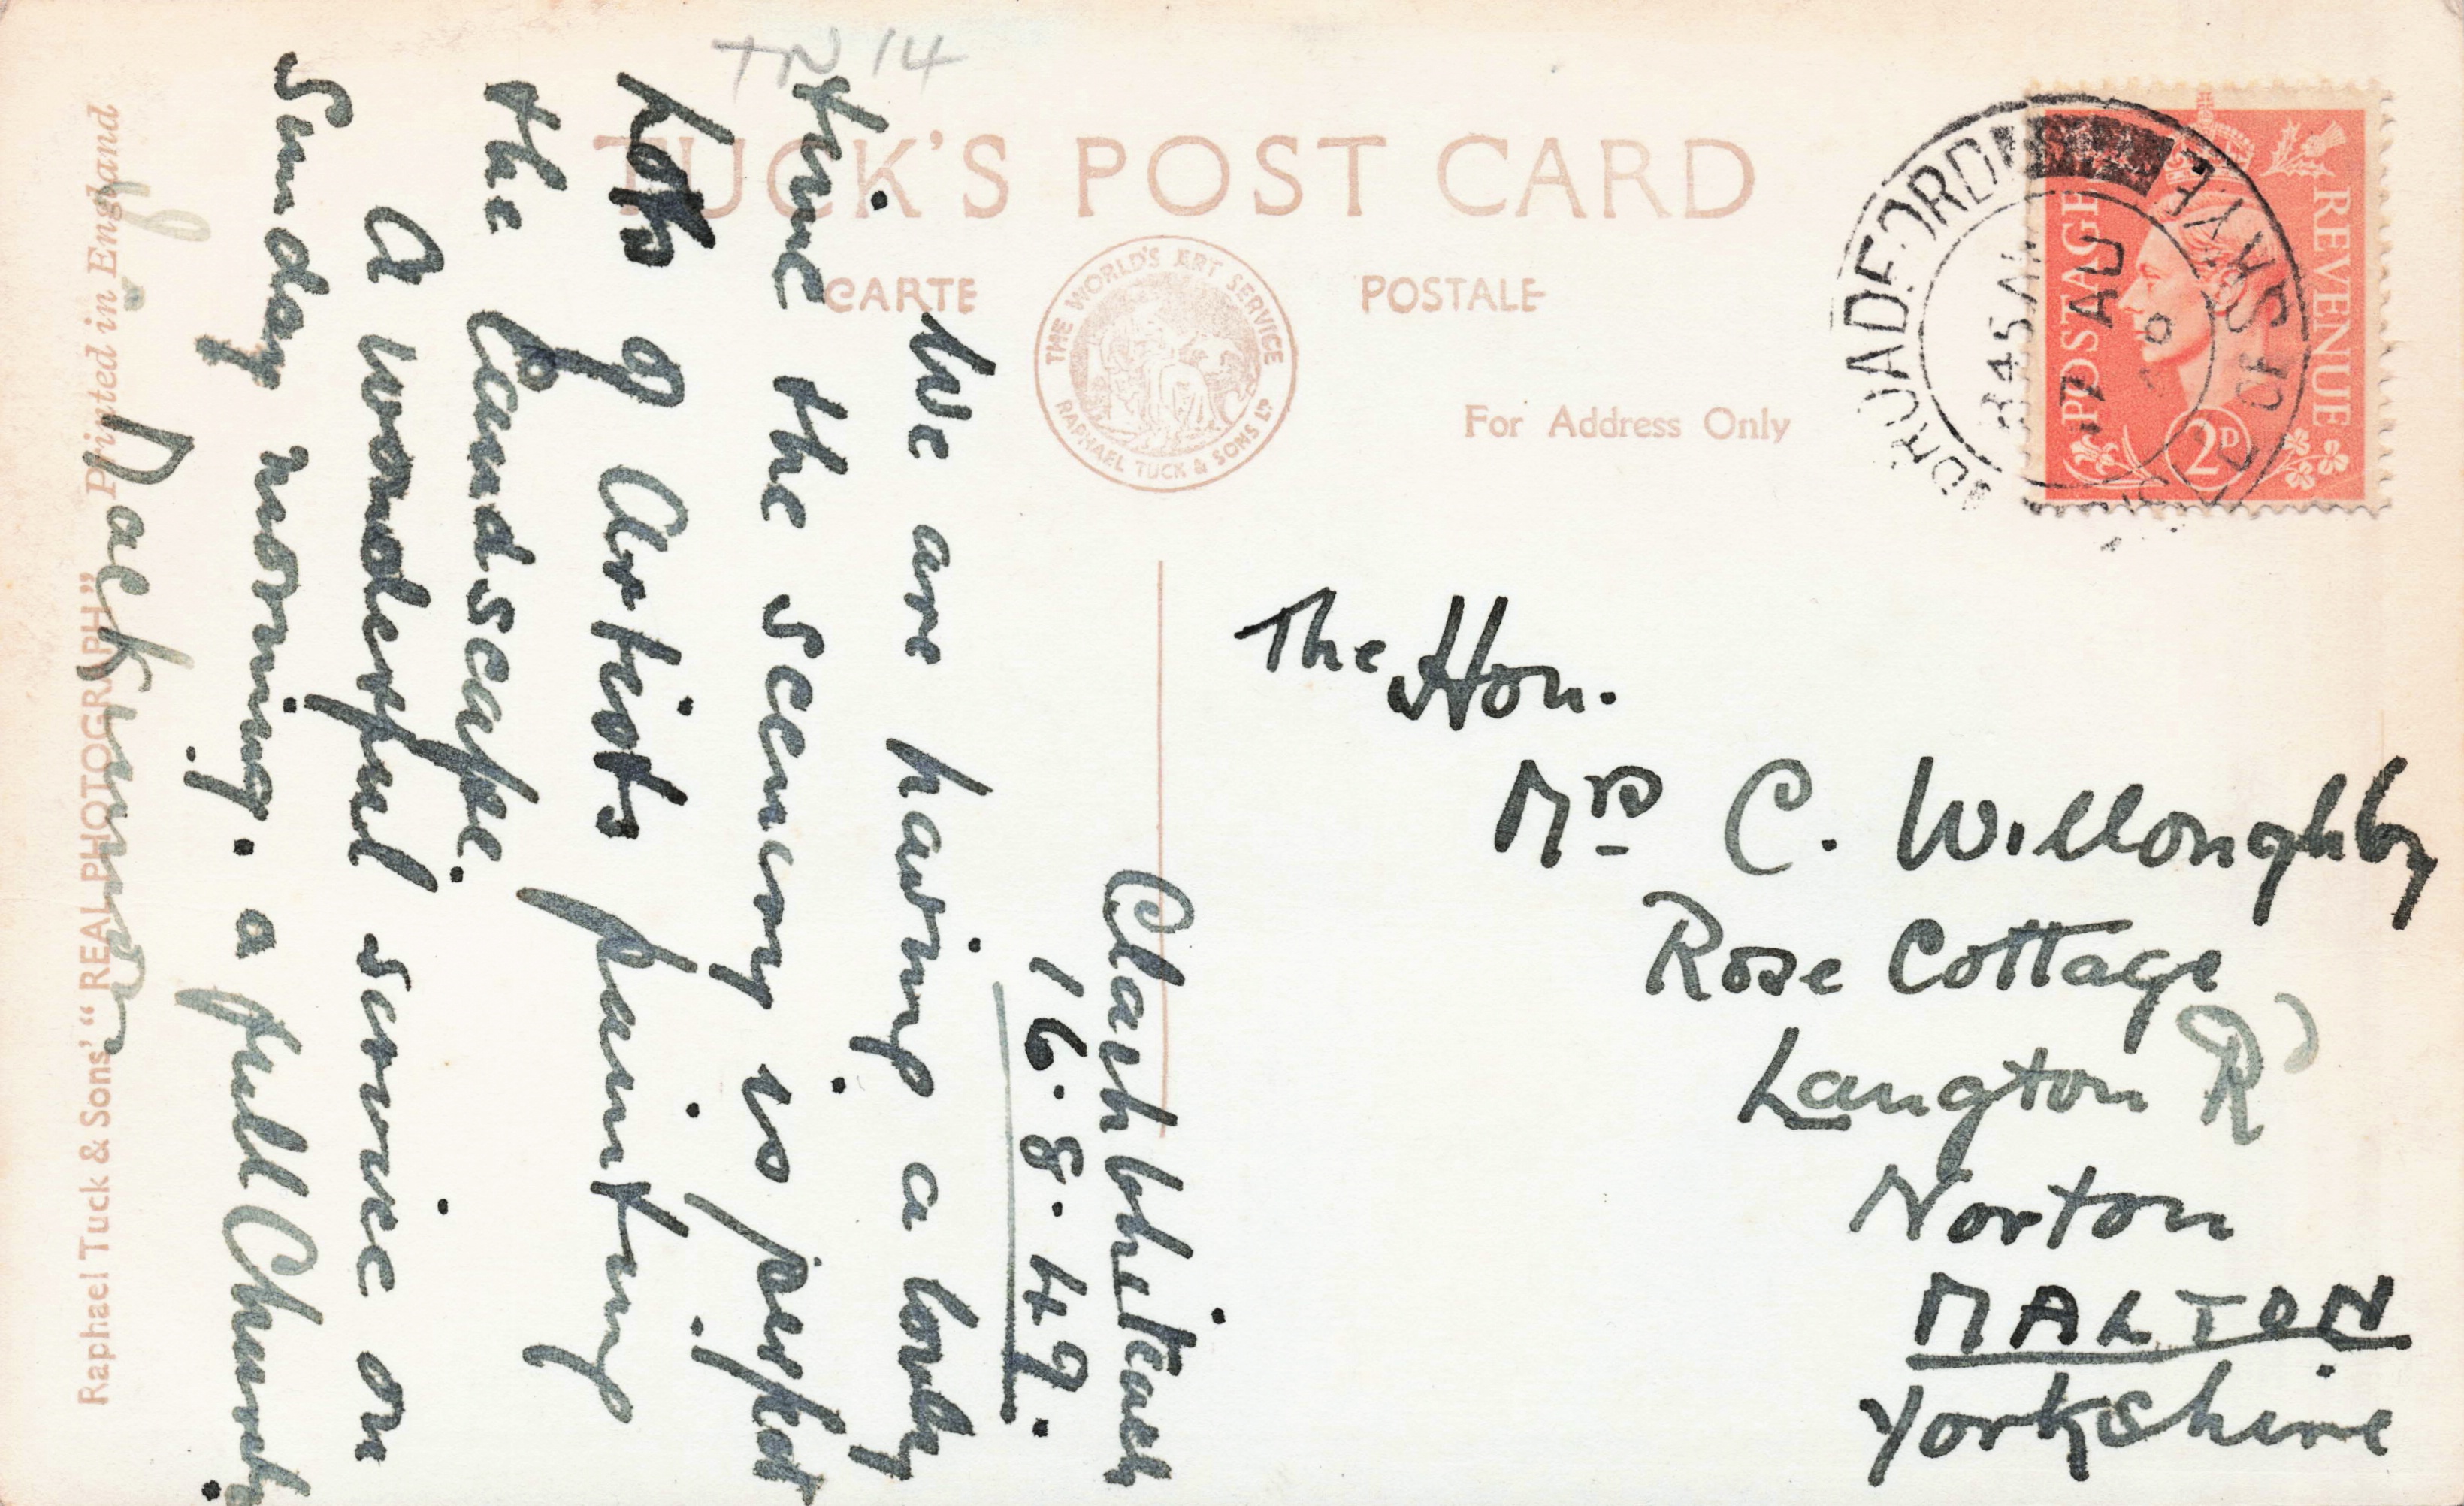 TN 14
TUCK'S POST CARD
CARTE
POSTALE
THE WORLD'S ART SERVICE
RAPHAEL TUCK & SONS LTD
For Address Only
BROADFORD
ISLE OF SKYE
845 AM
17 AU
POSTAGE
REVENUE
2D
The Hon.
Mrs C. Willoughby
Rose Cottage
Langton Rd
Norton
MALTON
Yorkshire
16.8.49.
We are having a lovely
time the scenery is perfect
Lots of Artists painting
the Landscape.
A wonderful service on
Sunday morning. a full Church
Raphael Tuck & Sons' "REAL PHOTOGRAPH" Printed in England